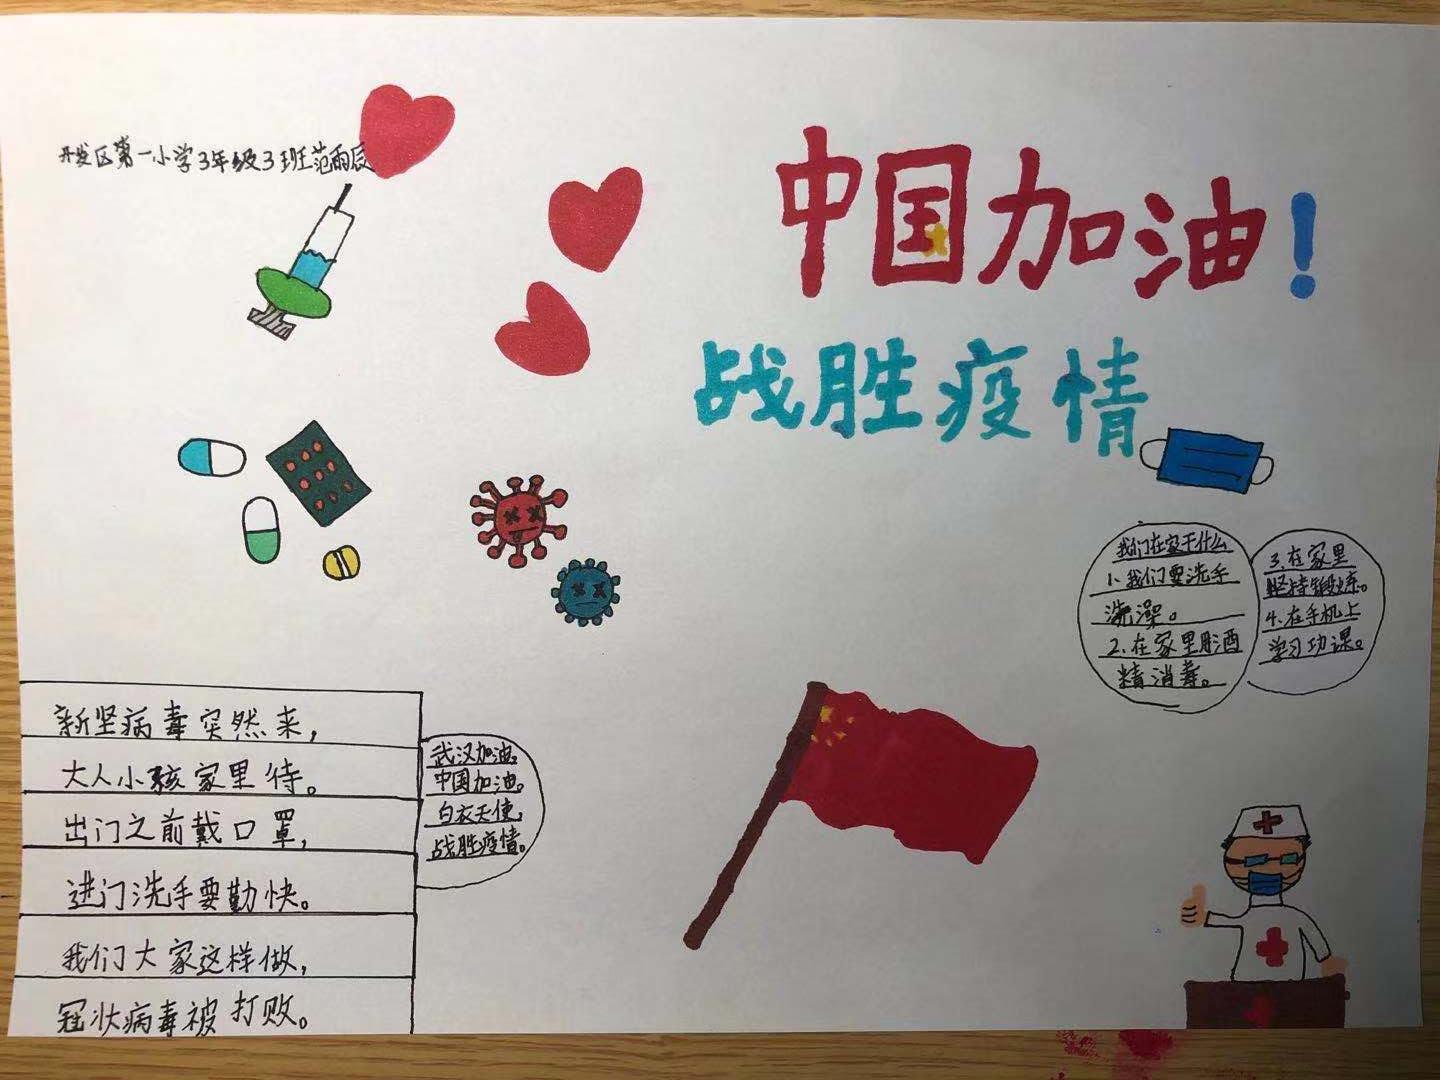 开发区第一小学3年级3班范雨辰
中国加油!
战胜疫情
我们在家干什么
1、我们要洗手
洗澡。
2、在家里用酒
精消毒。
3、在家里
坚持锻炼。
4、在手机上
学习功课。
新坚病毒突然来,
大人小孩家里待。
出门之前戴口罩,
进门洗手要勤快。
我们大家这样做,
冠状病毒被打败。
武汉加油。
中国加油。
白衣天使,
战胜疫情。